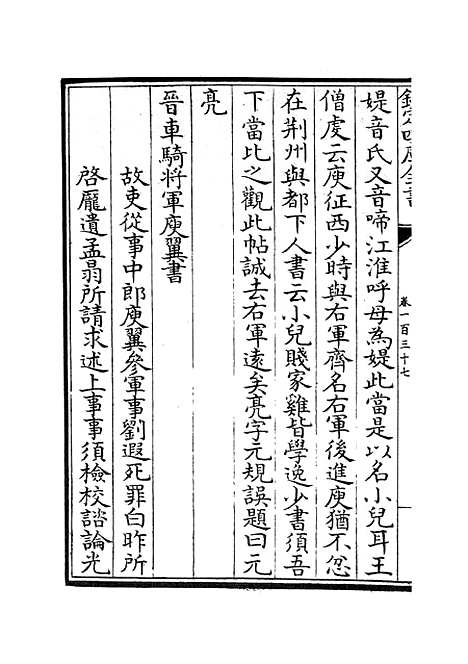 欽定四庫全書
卷一百三十七
媞音氏又音啼江淮呼母為媞此當是以名小兒耳王
僧虔云庾征西少時與右軍齊名右軍後進庾猶不忿
在荆州與都下人書云小兒賤家雞皆學逸少書須吾
下當比之觀此帖誠去右軍逺矣亮字元規誤題曰元
亮
晉車騎将軍庾翼書
故吏從事中郎庾翼參軍事劉遐死罪白昨所
啓龎遺孟翯所請求述上事事須檢校諮論光